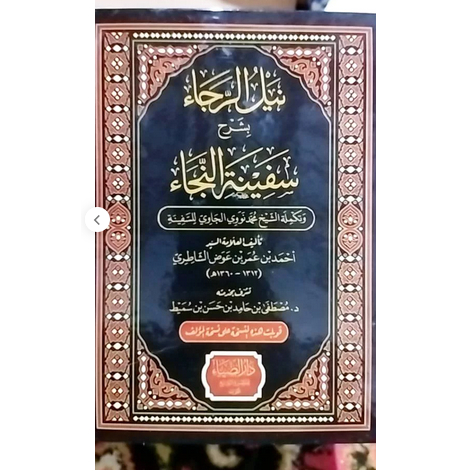 نيل الرجاء
بشرح
سفينة النجاء
وتكملة الشيخ محمد نووي الجاوي للسفينة
تأليف العلامة السيد
أحمد بن عمر بن عوض الشاطري
(١٣١٢ - ١٣٦٠هـ)
تشرف بخدمته
د. مصطفى بن حامد بن حسن بن سميط
قوبلت هذه النسخة على نسخة المؤلف
دار الضياء